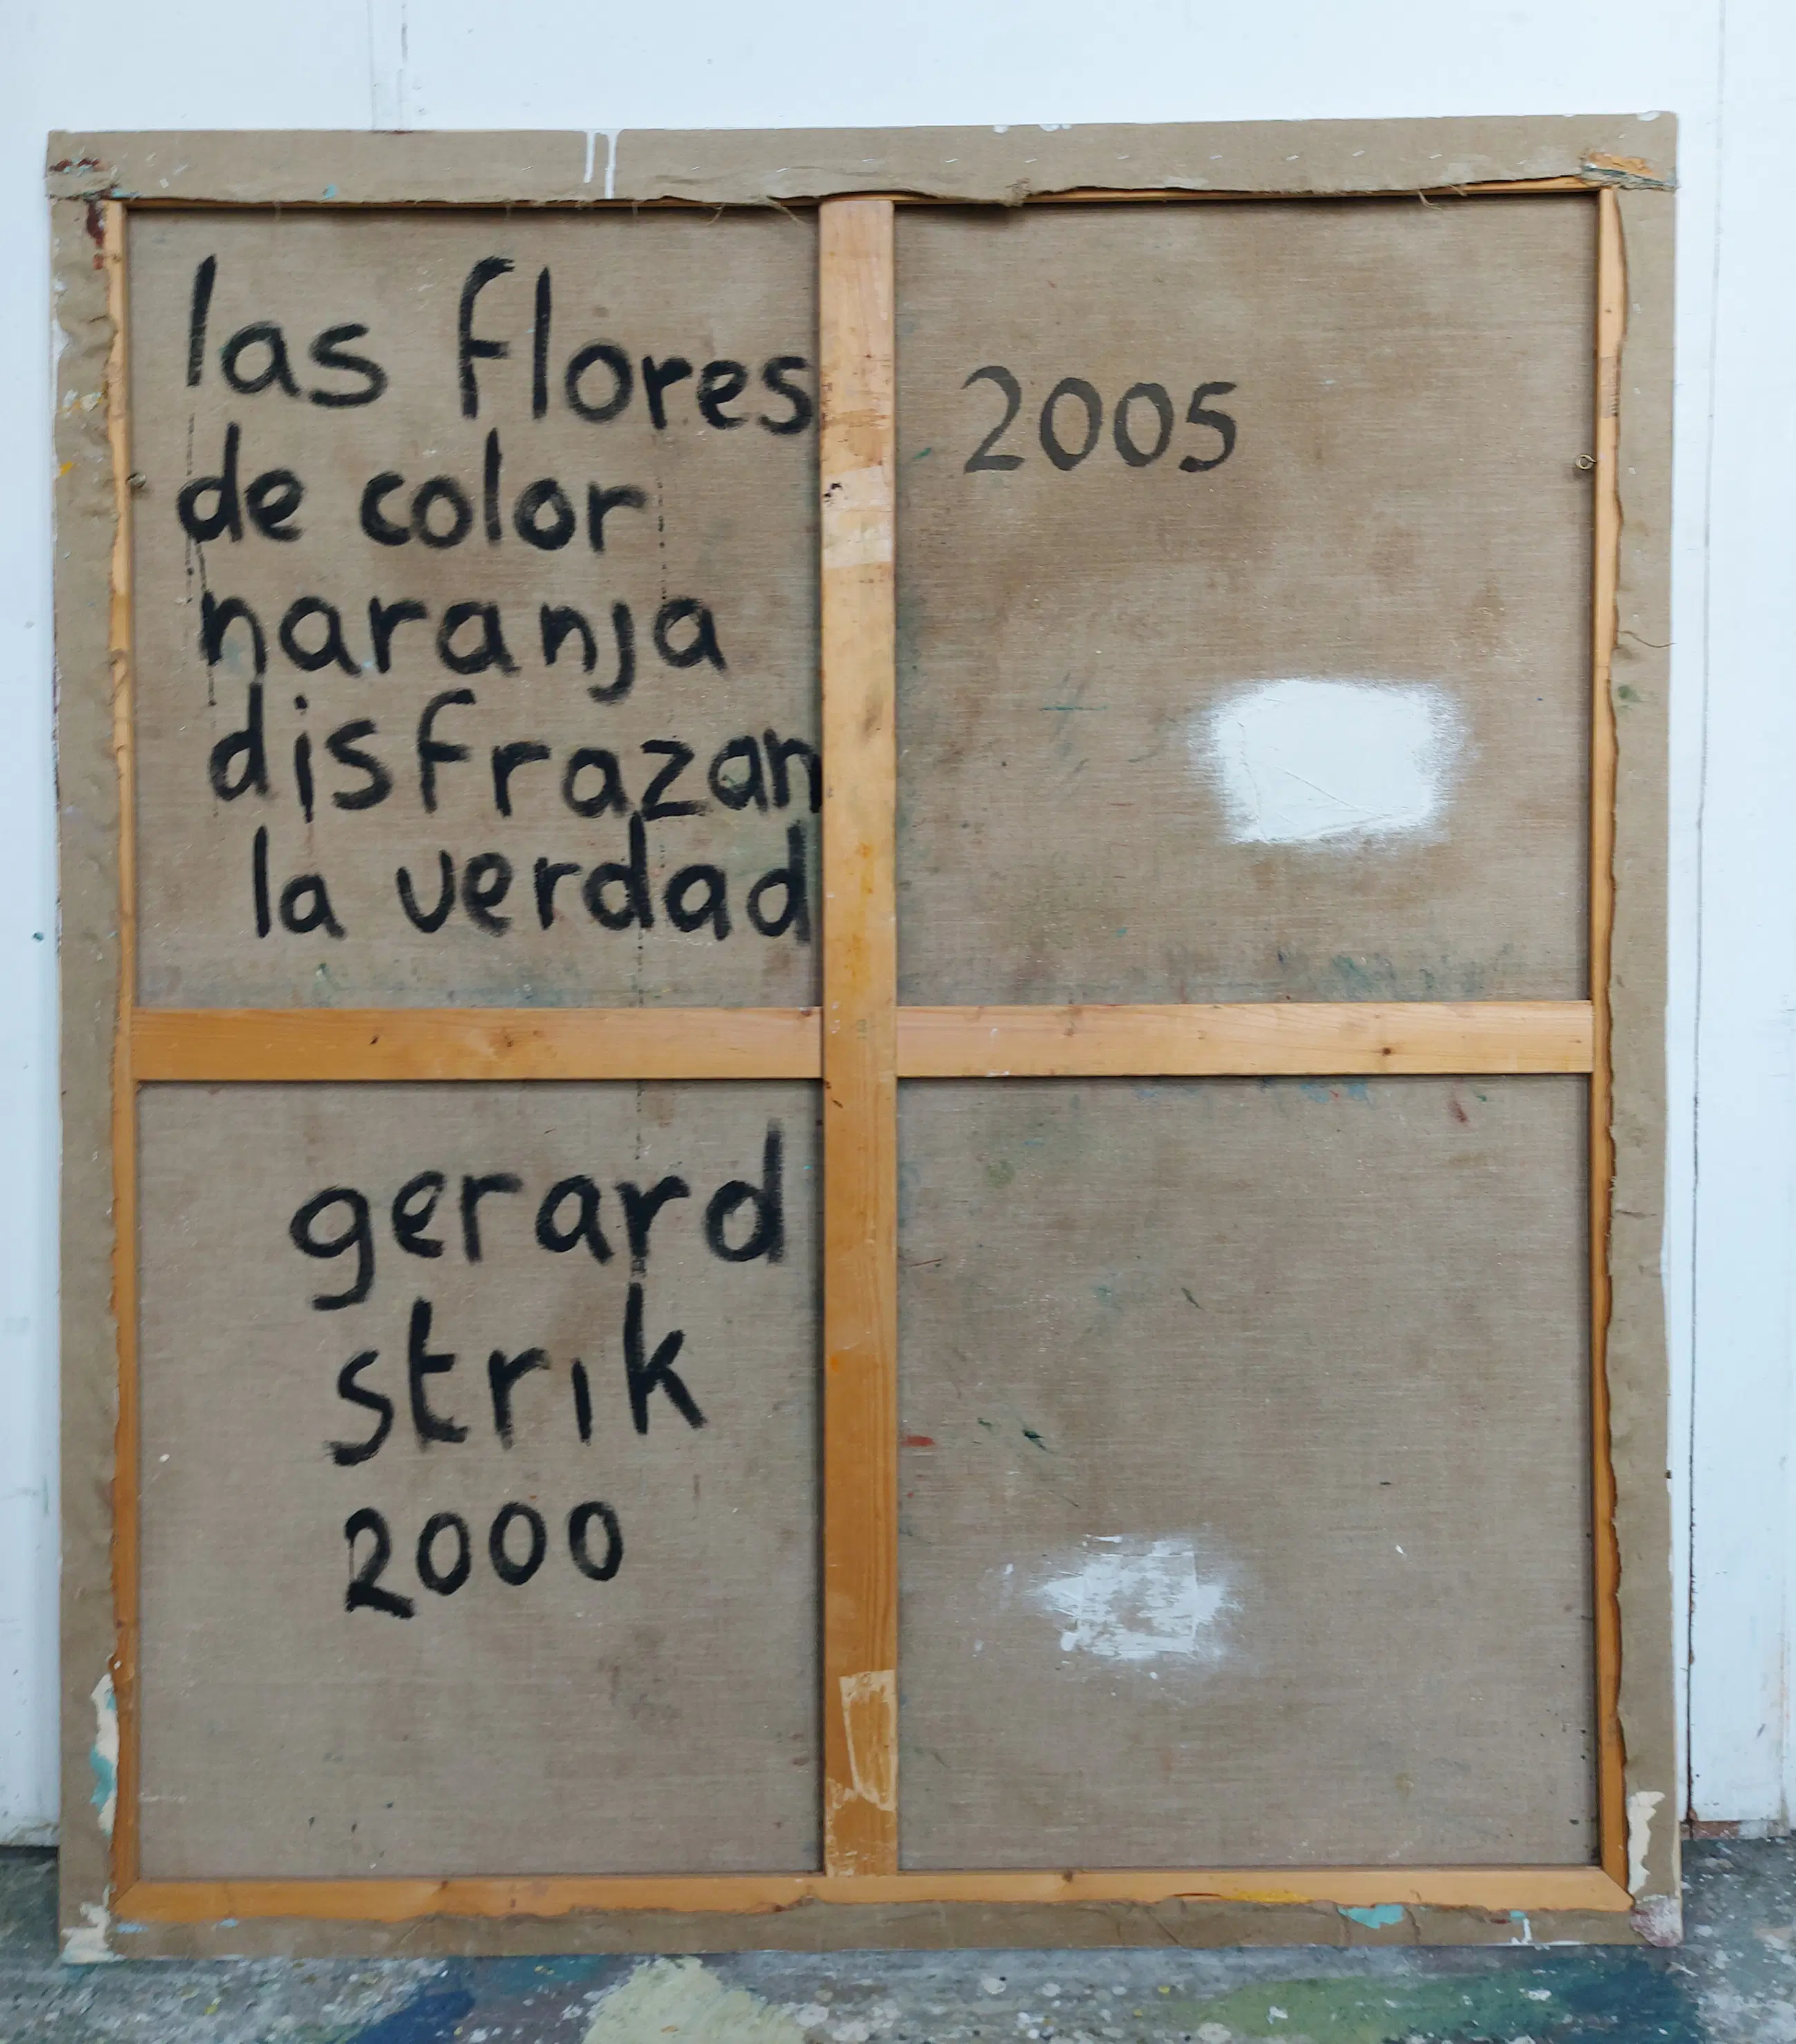 las flores
de color
naranja
disfrazan
la verdad
2005
gerard
strik
2000